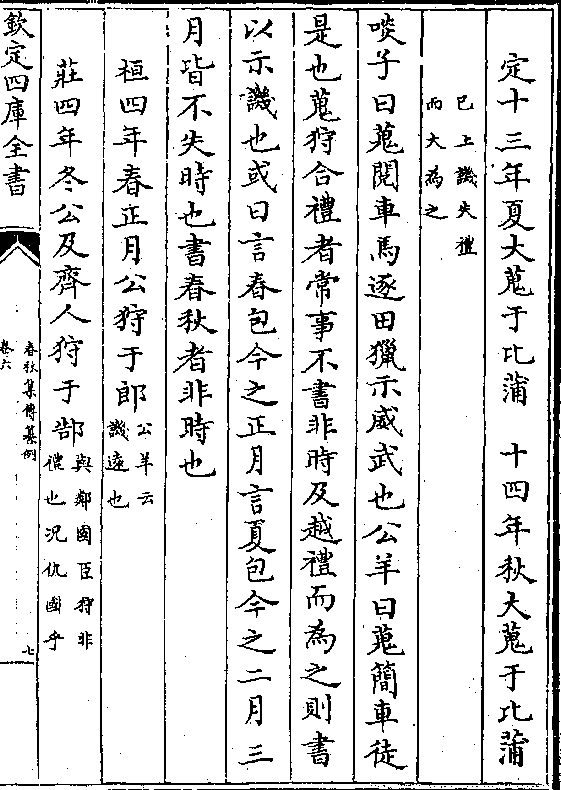 定十三年夏大蒐于比蒲　十四年秋大蒐于比蒲
已上譏失禮
而大為之
啖子曰蒐閱車馬逐田獵示威武也公羊曰蒐簡車徒
是也蒐狩合禮者常事不書非時及越禮而為之則書
以示譏也或曰言春包今之正月言夏包今之二月三
月皆不失時也書春秋者非時也
桓四年春正月公狩于郎公羊云
譏逺也
莊四年冬公及齊人狩于郜與鄰國臣狩非
禮也况仇國乎
欽定四庫全書
春秋集傳纂例
卷六
七